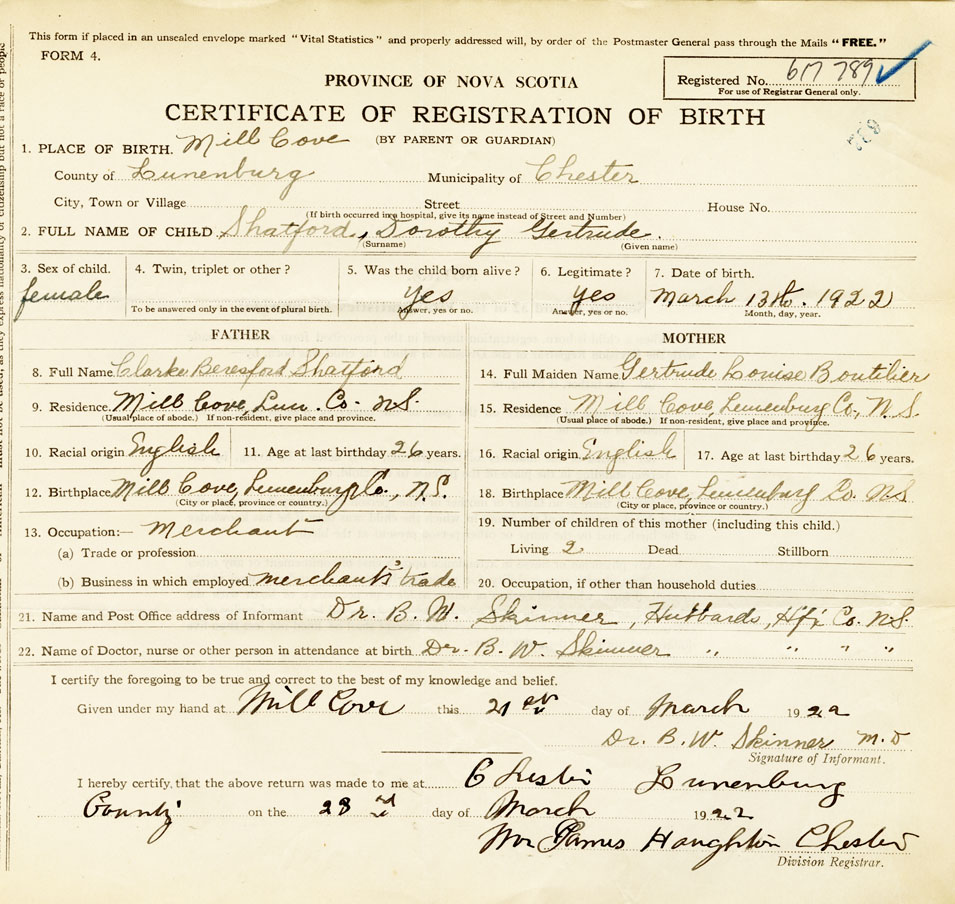 This form if placed in an unsealed envelope marked "Vital Statistics" and properly addressed will, by order of the Postmaster General pass through the Mails "FREE."
FORM 4.
Registered No. 617 789
For use of Registrar General only.
PROVINCE OF NOVA SCOTIA
CERTIFICATE OF REGISTRATION OF BIRTH
(BY PARENT OR GUARDIAN)
1. PLACE OF BIRTH. Mill Cove
County of Lunenburg Municipality of Chester
City, Town or Village Street House No.
(If birth occurred in a hospital, give its name instead of Street and Number)
2. FULL NAME OF CHILD Shatford, Dorothy Gertrude.
(Surname) (Given name)
3. Sex of child. 4. Twin, triplet or other? 5. Was the child born alive? 6. Legitimate? 7. Date of birth.
female yes yes March 13th. 1922
To be answered only in the event of plural birth. Answer, yes or no. Answer, yes or no. Month, day, year.
FATHER
8. Full Name Clarke Beresford Shatford
9. Residence. Mill Cove, Lun. Co. N.S.
(Usual place of abode.) If non-resident, give place and province.
10. Racial origin English 11. Age at last birthday 26 years.
12. Birthplace Mill Cove, Lunenburg Co., N.S.
(City or place, province or country.)
13. Occupation:— Merchant
(a) Trade or profession
(b) Business in which employed merchant's trade
MOTHER
14. Full Maiden Name Gertrude Louise Boutilier
15. Residence Mill Cove, Lunenburg Co., N.S.
(Usual place of abode.) If non-resident, give place and province.
16. Racial origin English 17. Age at last birthday 26 years.
18. Birthplace Mill Cove, Lunenburg Co. N.S.
(City or place, province or country.)
19. Number of children of this mother (including this child.)
Living 2 Dead Stillborn
20. Occupation, if other than household duties
21. Name and Post Office address of Informant Dr. B. W. Skinner, Hubbards, Hfx Co. N.S.
22. Name of Doctor, nurse or other person in attendance at birth Dr. B. W. Skinner " " " "
I certify the foregoing to be true and correct to the best of my knowledge and belief.
Given under my hand at Mill Cove this 21st day of March 1922
Dr. B. W. Skinner M.D
Signature of Informant.
I hereby certify, that the above return was made to me at Chester Lunenburg
County on the 23rd day of March 1922
Houghton Chester
Division Registrar.